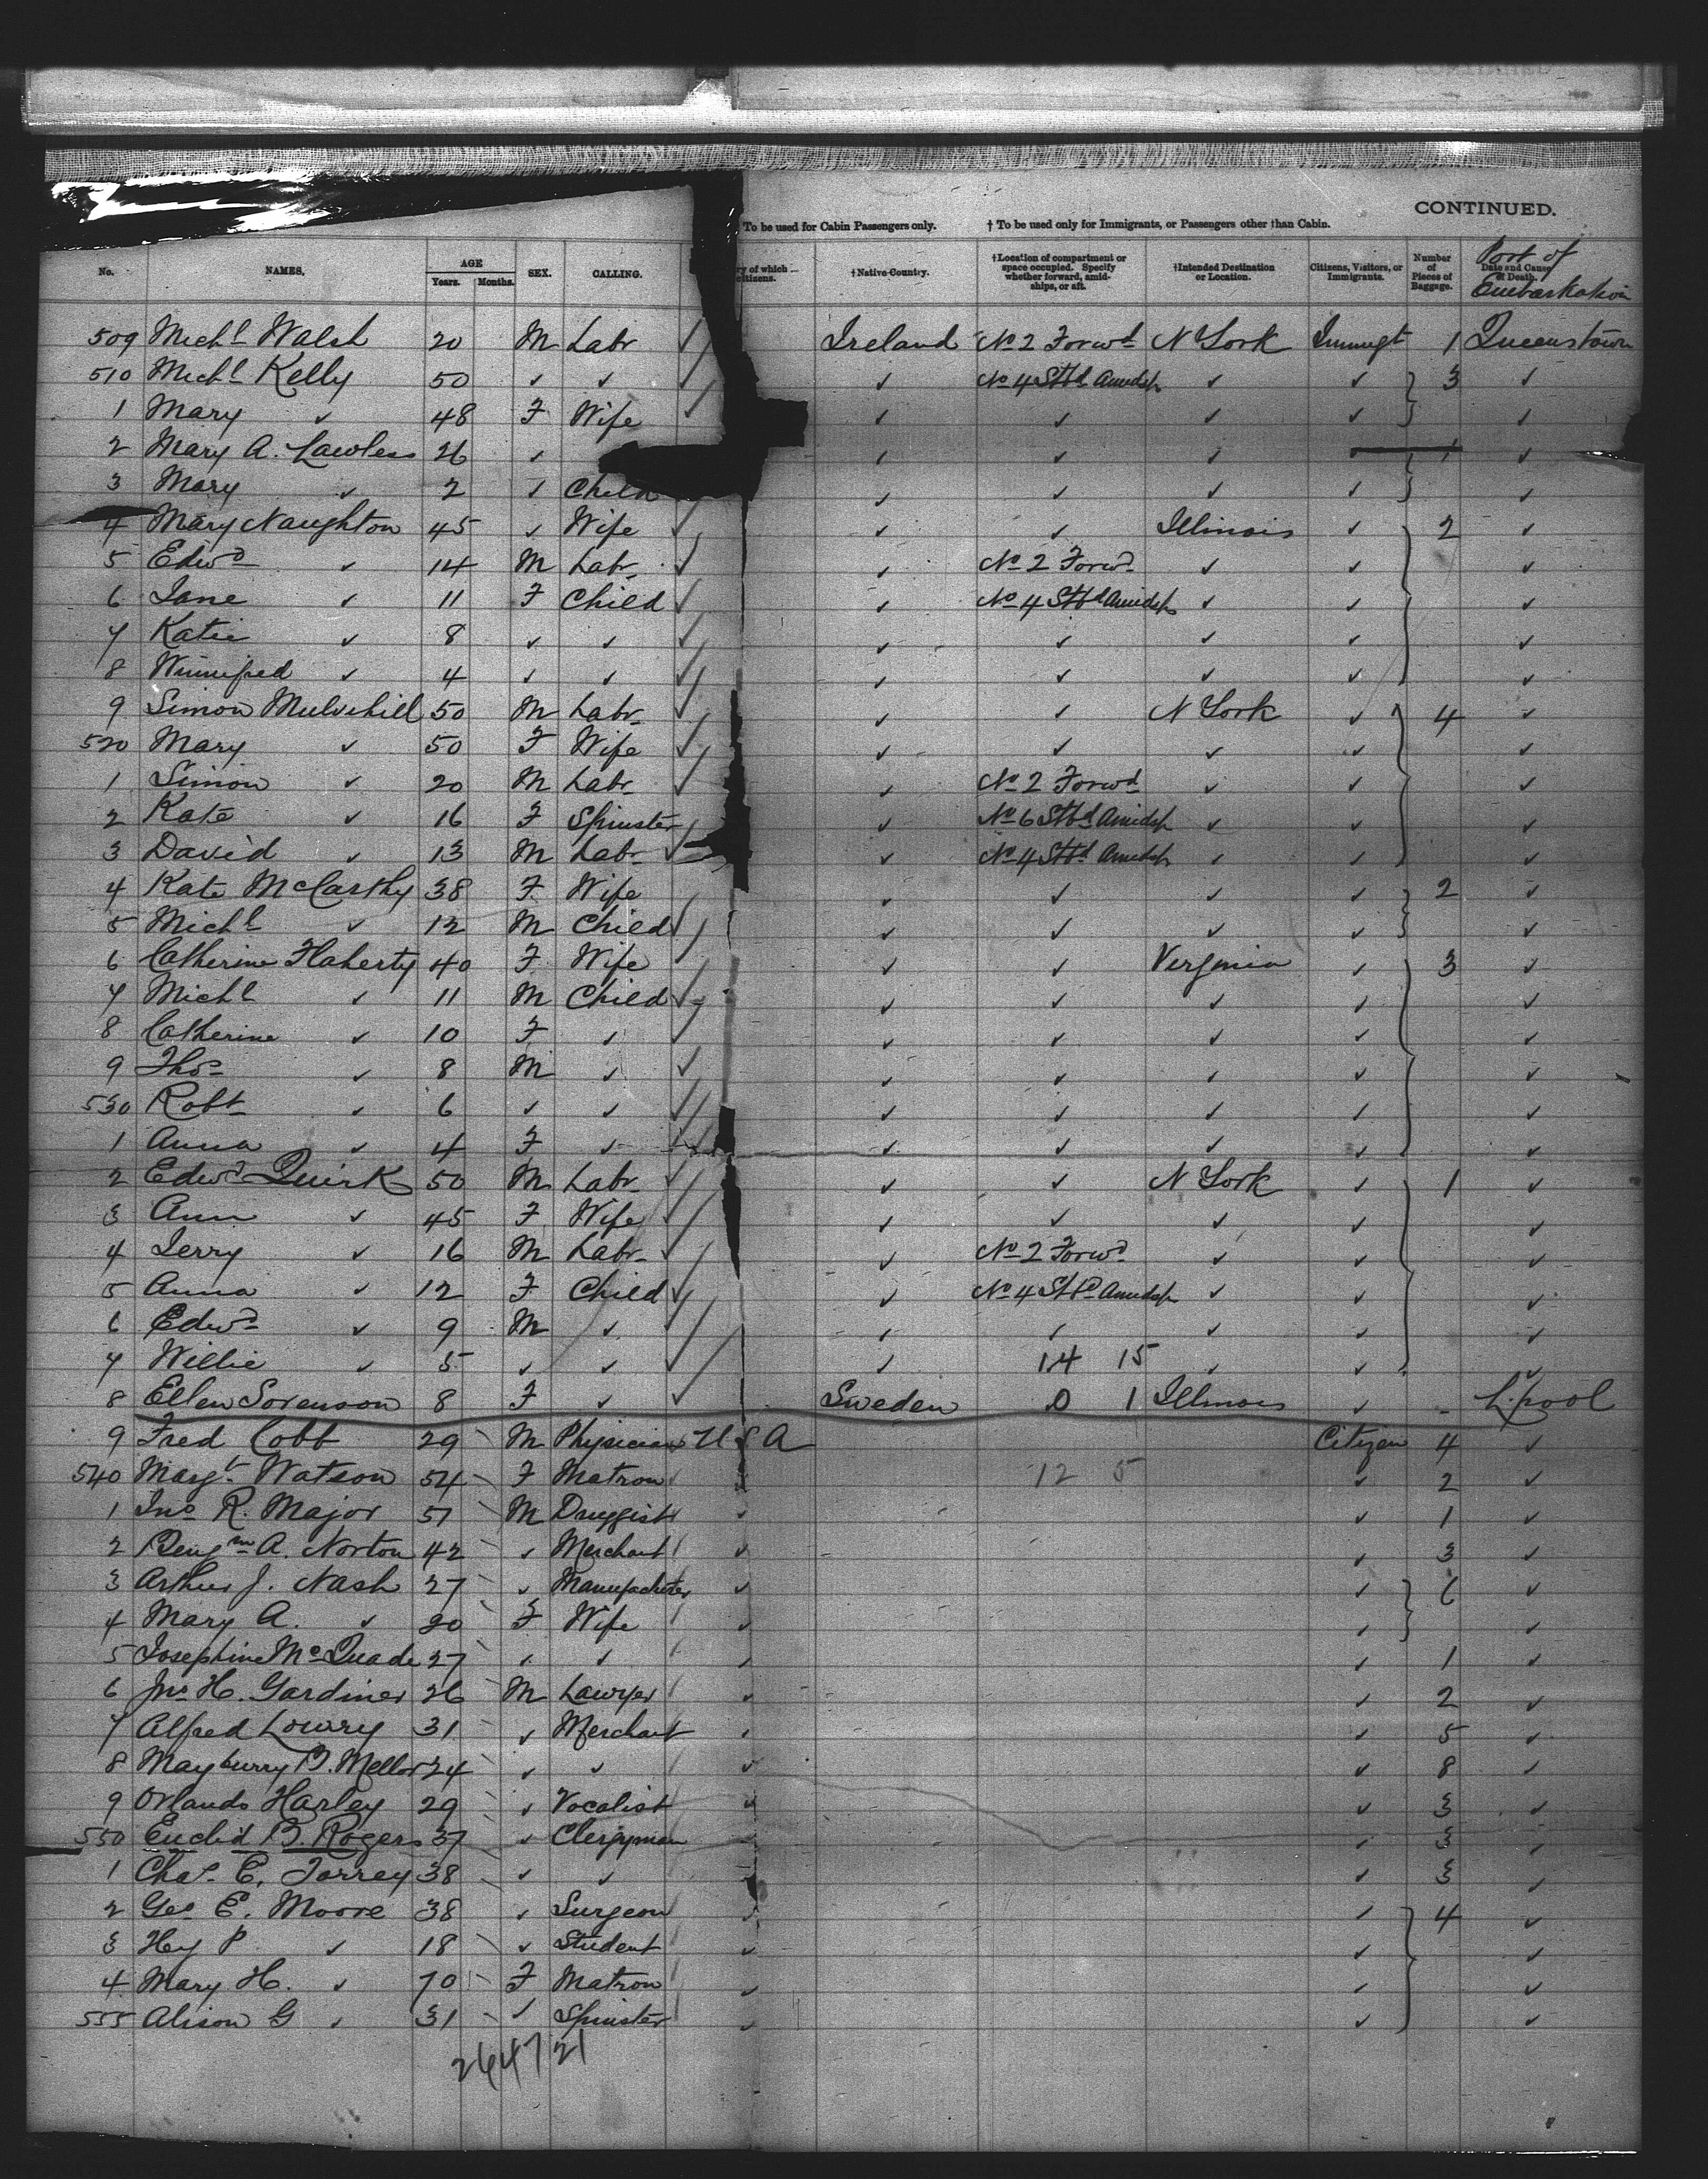 CONTINUED.
To be used for Cabin Passengers only. † To be used only for Immigrants, or Passengers other than Cabin.
No. NAMES. AGE Years. Months. SEX. CALLING. ry of which citizens. †Native Country. †Location of compartment or space occupied. Specify whether forward, amidships, or aft. †Intended Destination or Location. Citizens, Visitors, or Immigrants. Number of Pieces of Baggage. Date and Cause of Death. Port of Embarkation
509 Michl Walsh 20 M Labr ✓ Ireland No 2 Forwd N York Immigt 1 Queenstown
510 Michl Kelly 50 ✓ ✓ ✓ ✓ No 4 Stbd Amidsp ✓ ✓ 3 ✓
1 Mary ✓ 48 F Wife ✓ ✓ ✓ ✓ ✓ ✓
2 Mary A. Lawless 26 ✓ ✓ ✓ ✓ ✓ 1 ✓
3 Mary ✓ 2 ✓ Child ✓ ✓ ✓ ✓ ✓
4 Mary Naughton 45 ✓ Wife ✓ ✓ ✓ Illinois ✓ 2 ✓
5 Edwd ✓ 14 M Labr ✓ ✓ No 2 Forwd ✓ ✓ ✓
6 Jane ✓ 11 F Child ✓ ✓ No 4 Stbd Amidsp ✓ ✓ ✓
7 Katie ✓ 8 ✓ ✓ ✓ ✓ ✓ ✓ ✓ ✓
8 Winnifred ✓ 4 ✓ ✓ ✓ ✓ ✓ ✓ ✓ ✓
9 Simon Mulvihill 50 M Labr ✓ ✓ ✓ N York ✓ 4 ✓
520 Mary ✓ 50 F Wife ✓ ✓ ✓ ✓ ✓ ✓
1 Simon ✓ 20 M Labr ✓ ✓ No 2 Forwd ✓ ✓ ✓
2 Kate ✓ 16 F Spinster ✓ No 6 Stbd Amidsp ✓ ✓ ✓
3 David ✓ 13 M Labr ✓ ✓ No 4 Stbd Amidsp ✓ ✓ ✓
4 Kate McCarthy 38 F Wife ✓ ✓ ✓ ✓ 2 ✓
5 Michl ✓ 12 M Child ✓ ✓ ✓ ✓ ✓ ✓
6 Catherine Flaherty 40 F Wife ✓ ✓ ✓ Verginia ✓ 3 ✓
7 Michl ✓ 11 M Child ✓ ✓ ✓ ✓ ✓ ✓
8 Catherine ✓ 10 F ✓ ✓ ✓ ✓ ✓ ✓ ✓
9 Thos ✓ 8 M ✓ ✓ ✓ ✓ ✓ ✓ ✓
530 Robt ✓ 6 ✓ ✓ ✓ ✓ ✓ ✓ ✓ ✓
1 Anna ✓ 4 F ✓ ✓ ✓ ✓ ✓ ✓ ✓
2 Edwd Quirk 50 M Labr ✓ ✓ ✓ N York ✓ 1 ✓
3 Ann ✓ 45 F Wife ✓ ✓ ✓ ✓ ✓ ✓
4 Jerry ✓ 16 M Labr ✓ ✓ No 2 Forwd ✓ ✓ ✓
5 Anna ✓ 12 F Child ✓ ✓ No 4 Stbd Amidsp ✓ ✓ ✓
6 Edwd ✓ 9 M ✓ ✓ ✓ ✓ ✓ ✓ ✓
7 Willie ✓ 5 ✓ ✓ ✓ ✓ 14 15 ✓ ✓ ✓
8 Ellen Sorenson 8 F ✓ ✓ Sweden 0 1 Illinois ✓ - L.pool
9 Fred Cobb 29 M Physician U S A Citizen 4 ✓
540 Margt Watson 54 F Matron ✓ 12 5 ✓ 2 ✓
1 Jno R. Major 51 M Druggist ✓ ✓ 1 ✓
2 Benjmn A. Norton 42 ✓ Merchant ✓ ✓ 3 ✓
3 Arthur J. Nash 27 ✓ Manufacturer ✓ ✓ 6 ✓
4 Mary A. ✓ 20 F Wife ✓ ✓ ✓
5 Josephine McQuade 27 ✓ ✓ ✓ ✓ 1 ✓
6 Jno H. Gardiner 26 M Lawyer ✓ ✓ 2 ✓
7 Alfred Lowry 31 ✓ Merchant ✓ ✓ 5 ✓
8 Mayburry B. Mellor 24 ✓ ✓ ✓ ✓ 8 ✓
9 Orlando Harley 29 ✓ Vocalist ✓ ✓ 3 ✓
550 Euclid B. Rogers 37 ✓ Clergyman ✓ 3 ✓
1 Chas C. Torrey 38 ✓ ✓ ✓ ✓ 3 ✓
2 Geo E. Moore 38 ✓ Surgeon ✓ ✓ 4 ✓
3 Hy P. ✓ 18 ✓ Student ✓ ✓ ✓
4 Mary H. ✓ 70 F Matron ✓ ✓ ✓
555 Alison G ✓ 31 ✓ Spinster ✓ ✓ ✓
264721